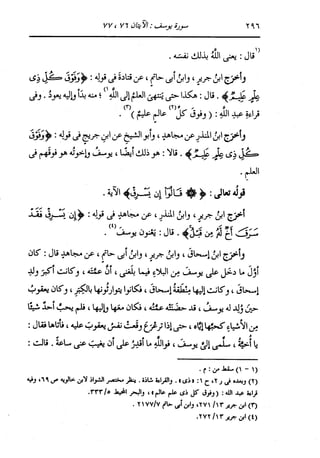 ٢٩٦
سورة يوسف : الآيتان ٧٦ ، ٧٧
(١)قال : يعنى اللهُ بذلك نفسَه .
وأخرَج ابنُ جريرٍ ، وابنُ أبى حاتمٍ ، عن قتادةَ فى قولِه : ﴿وَفَوْقَ كُلِّ ذِى
عِلْمٍ عَلِيمٌ﴾ . قال : هكذا حتى يَنتهىَ العلمُ إلى اللهِ(١) ؛ منه بدَأ وإليه يعودُ . وفى
قراءةِ عبدِ اللهِ : ( وفوقَ كلِّ(٢) عالمٍ عليمٌ )(٣) .
وأخرَج ابنُ المنذرِ عن مجاهدٍ ، وأبو الشيخِ عن ابنِ جريجٍ فى قولِه : ﴿وَفَوْقَ
كُلِّ ذِى عِلْمٍ عَلِيمٌ﴾ . قالا : هو ذلك أيضًا ، يوسفُ وإخوتُه هو فوقَهم فى
العلمِ .
قولُه تعالى : ﴿قَالُوٓا إِن يَسْرِقْ﴾ الآية .
أخرَج ابنُ جريرٍ ، وابنُ المنذرِ ، عن مجاهدٍ فى قولِه : ﴿إِن يَسْرِقْ فَقَدْ
سَرَقَ أَخٌ لَّهُ مِن قَبْلُ﴾ . قال : يَعْنون يوسفَ(٤) .
وأخرَج ابنُ إسحاقَ ، وابنُ جريرٍ ، وابنُ أبى حاتمٍ ، عن مجاهدٍ قال : كان
أوَّلُ ما دخَل على يوسفَ من البلاءِ فيما بلَغنى ، أنَّ عمَّتَه ، وكانت أكبرَ ولدِ
إسحاقَ ، وكانت إليها مِنطَقةُ إسحاقَ ، فكانوا يتوارثُونها بالكِبَرِ ، وكان يعقوبُ
حينَ وُلد له يوسفُ ، قد حضَنتْه عمَّتُه ، فكان معَها وإليها ، فلم يُحِبَّ أحدٌ شيئًا
من الأشياءِ كحبِّها إيَّاه ، حتى إذا ترَعْرَعَ وقَعتْ نفسُ يعقوبَ عليه ، فأتاها فقال :
يا أُخيَّةُ ، سلِّمى إلىَّ يوسفَ ، فواللهِ ما أقدِرُ على أن يغيبَ عنى ساعةً . قالت :
(١ - ١) سقط من : م .
(٢) وبعده فى ر ٢ ، ح ١ : «ذى» . والقراءة شاذة . ينظر مختصر الشواذ لابن خالويه ص ٦٩ ، وفيه
قراءة عبد الله : (وفوق كل ذى علم عالم) ، والبحر المحيط ٥/ ٣٣٣.
(٣) ابن جرير ١٣/ ٢٧١، وابن أبى حاتم ٧/ ٢١٧٧.
(٤) ابن جرير ١٣/ ٢٧٢.